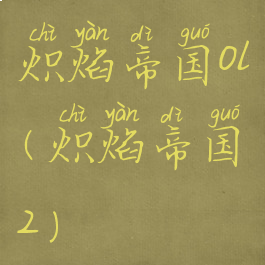 chì yàn dì guó
炽焰帝国Ol
chì yàn dì guó
(炽焰帝国
2)